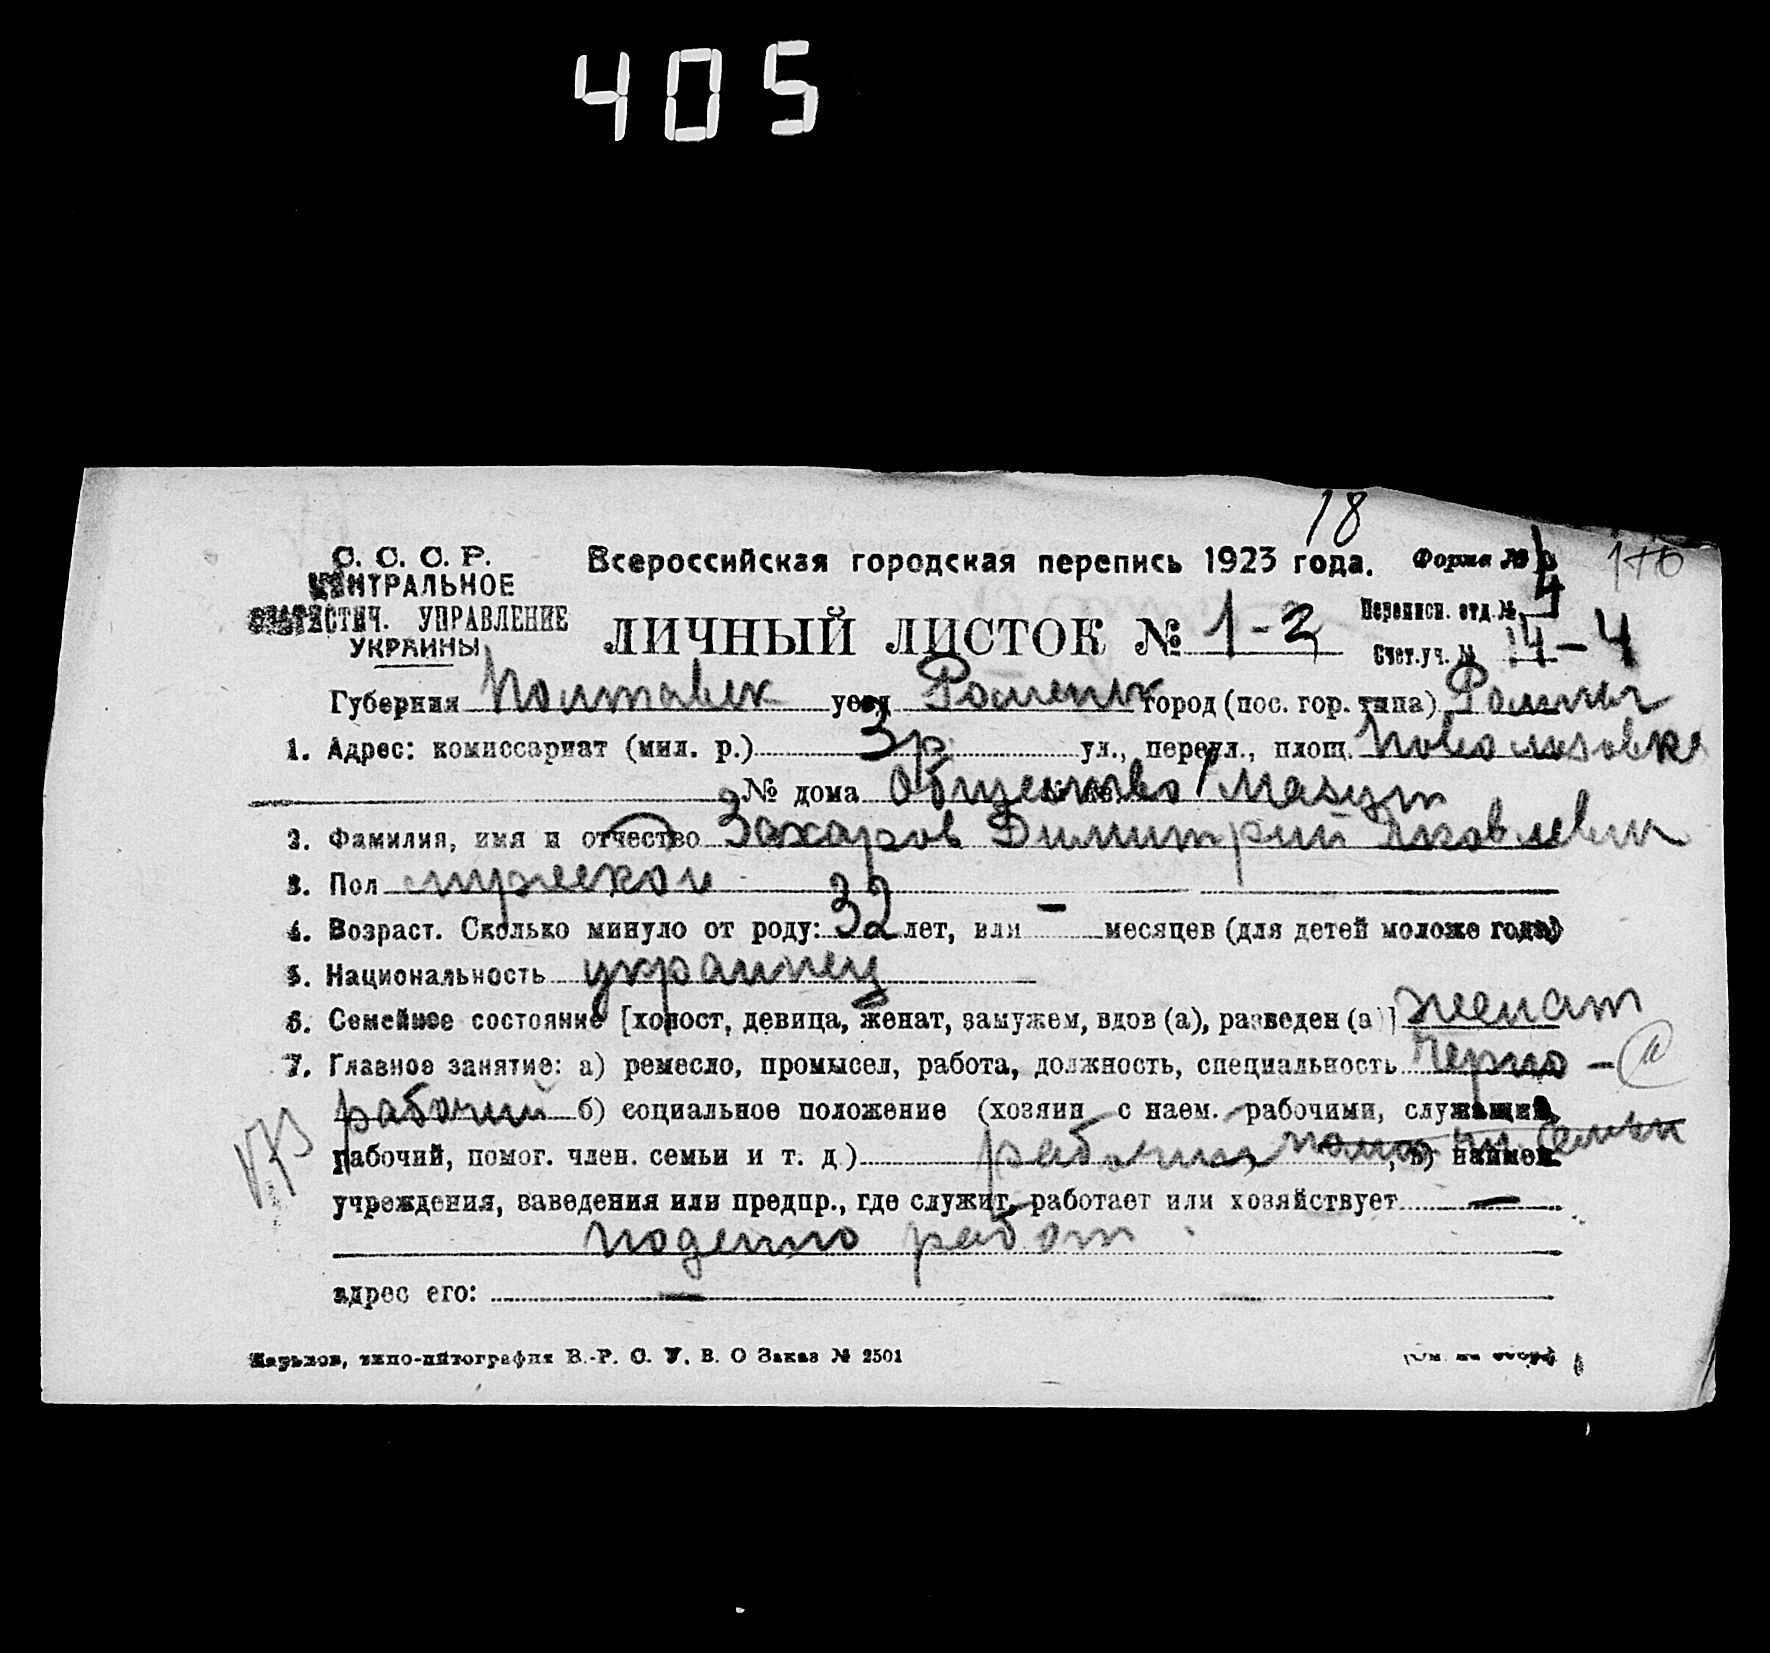 405
18
С. С. С. Р. Всероссийская городская перепись 1923 года. Форма №
ЦЕНТРАЛЬНОЕ
СТАТИСТИЧ. УПРАВЛЕНИЕ
УКРАИНЫ
ЛИЧНЫЙ ЛИСТОК № 1-2
Переписн. отд. № 4
Счет.уч. № 14-4
Губерния Полтавск уезд Роменск город (пос. гор. типа) Ромны
1. Адрес: комиссариат (мил. р.) 3 р. ул., переул., площ.
№ дома Общество Мазут
2. Фамилия, имя и отчество Захаров Димитрий Яковлевич
3. Пол мужской
4. Возраст. Сколько минуло от роду: 32 лет, или - месяцев (для детей моложе года)
5. Национальность украинец
6. Семейное состояние [холост, девица, женат, замужем, вдов (а), разведен (а)] женат
7. Главное занятие: а) ремесло, промысел, работа, должность, специальность черно-
рабочий б) социальное положение (хозяин с наем. рабочими, служащий,
рабочий, помог. член. семьи и т. д.) рабочий , в) наимен.
учреждения, заведения или предпр., где служит, работает или хозяйствует —
поденно работ
адрес его: —
Харьков, типо-литография В.-Р. С. У. В. О Заказ № 2501